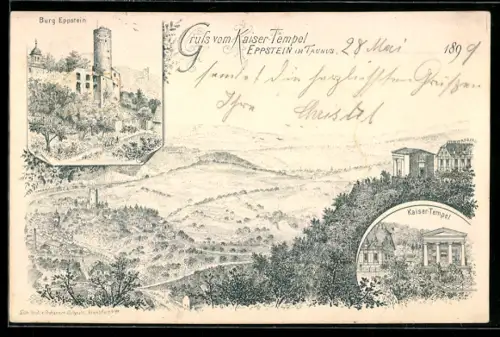 Burg Eppstein
Gruß vom Kaiser-Tempel
EPPSTEIN IM TAUNUS, 28 Mai 1899
sendet die herzlichsten Grüßen
Ihre Christel
Kaiser-Tempel